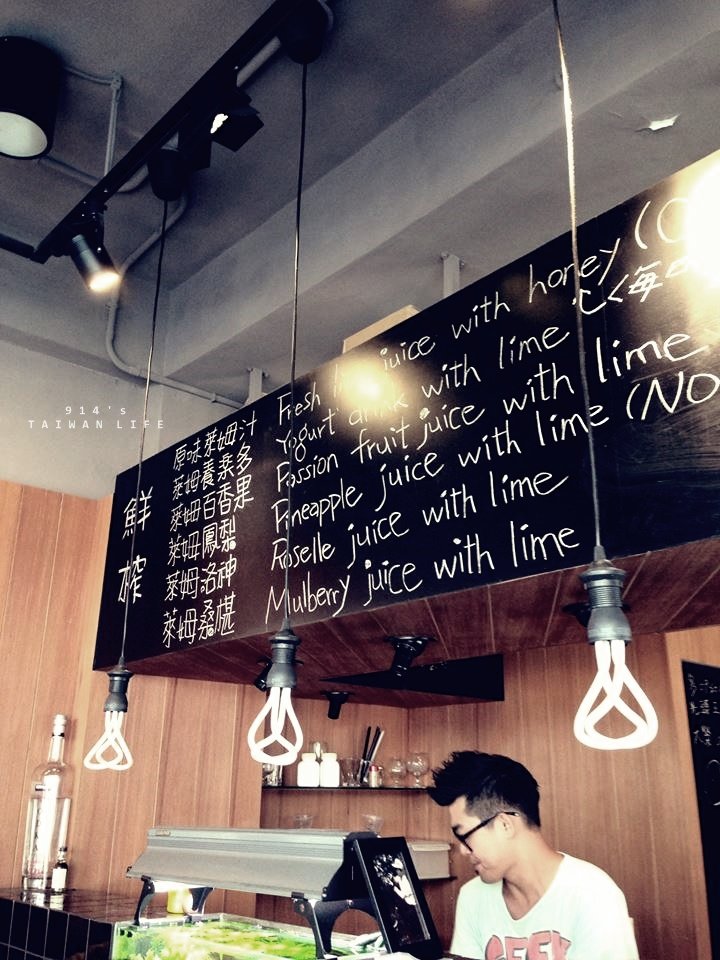 914's
TAIWAN LIFE
鮮榨
原味萊姆汁 Fresh juice with honey
萊姆養樂多 Yogurt drink with lime
萊姆百香果 Passion fruit juice with lime
萊姆鳳梨 Pineapple juice with lime (NO
萊姆洛神 Roselle juice with lime
萊姆桑椹 Mulberry juice with lime
GEEK